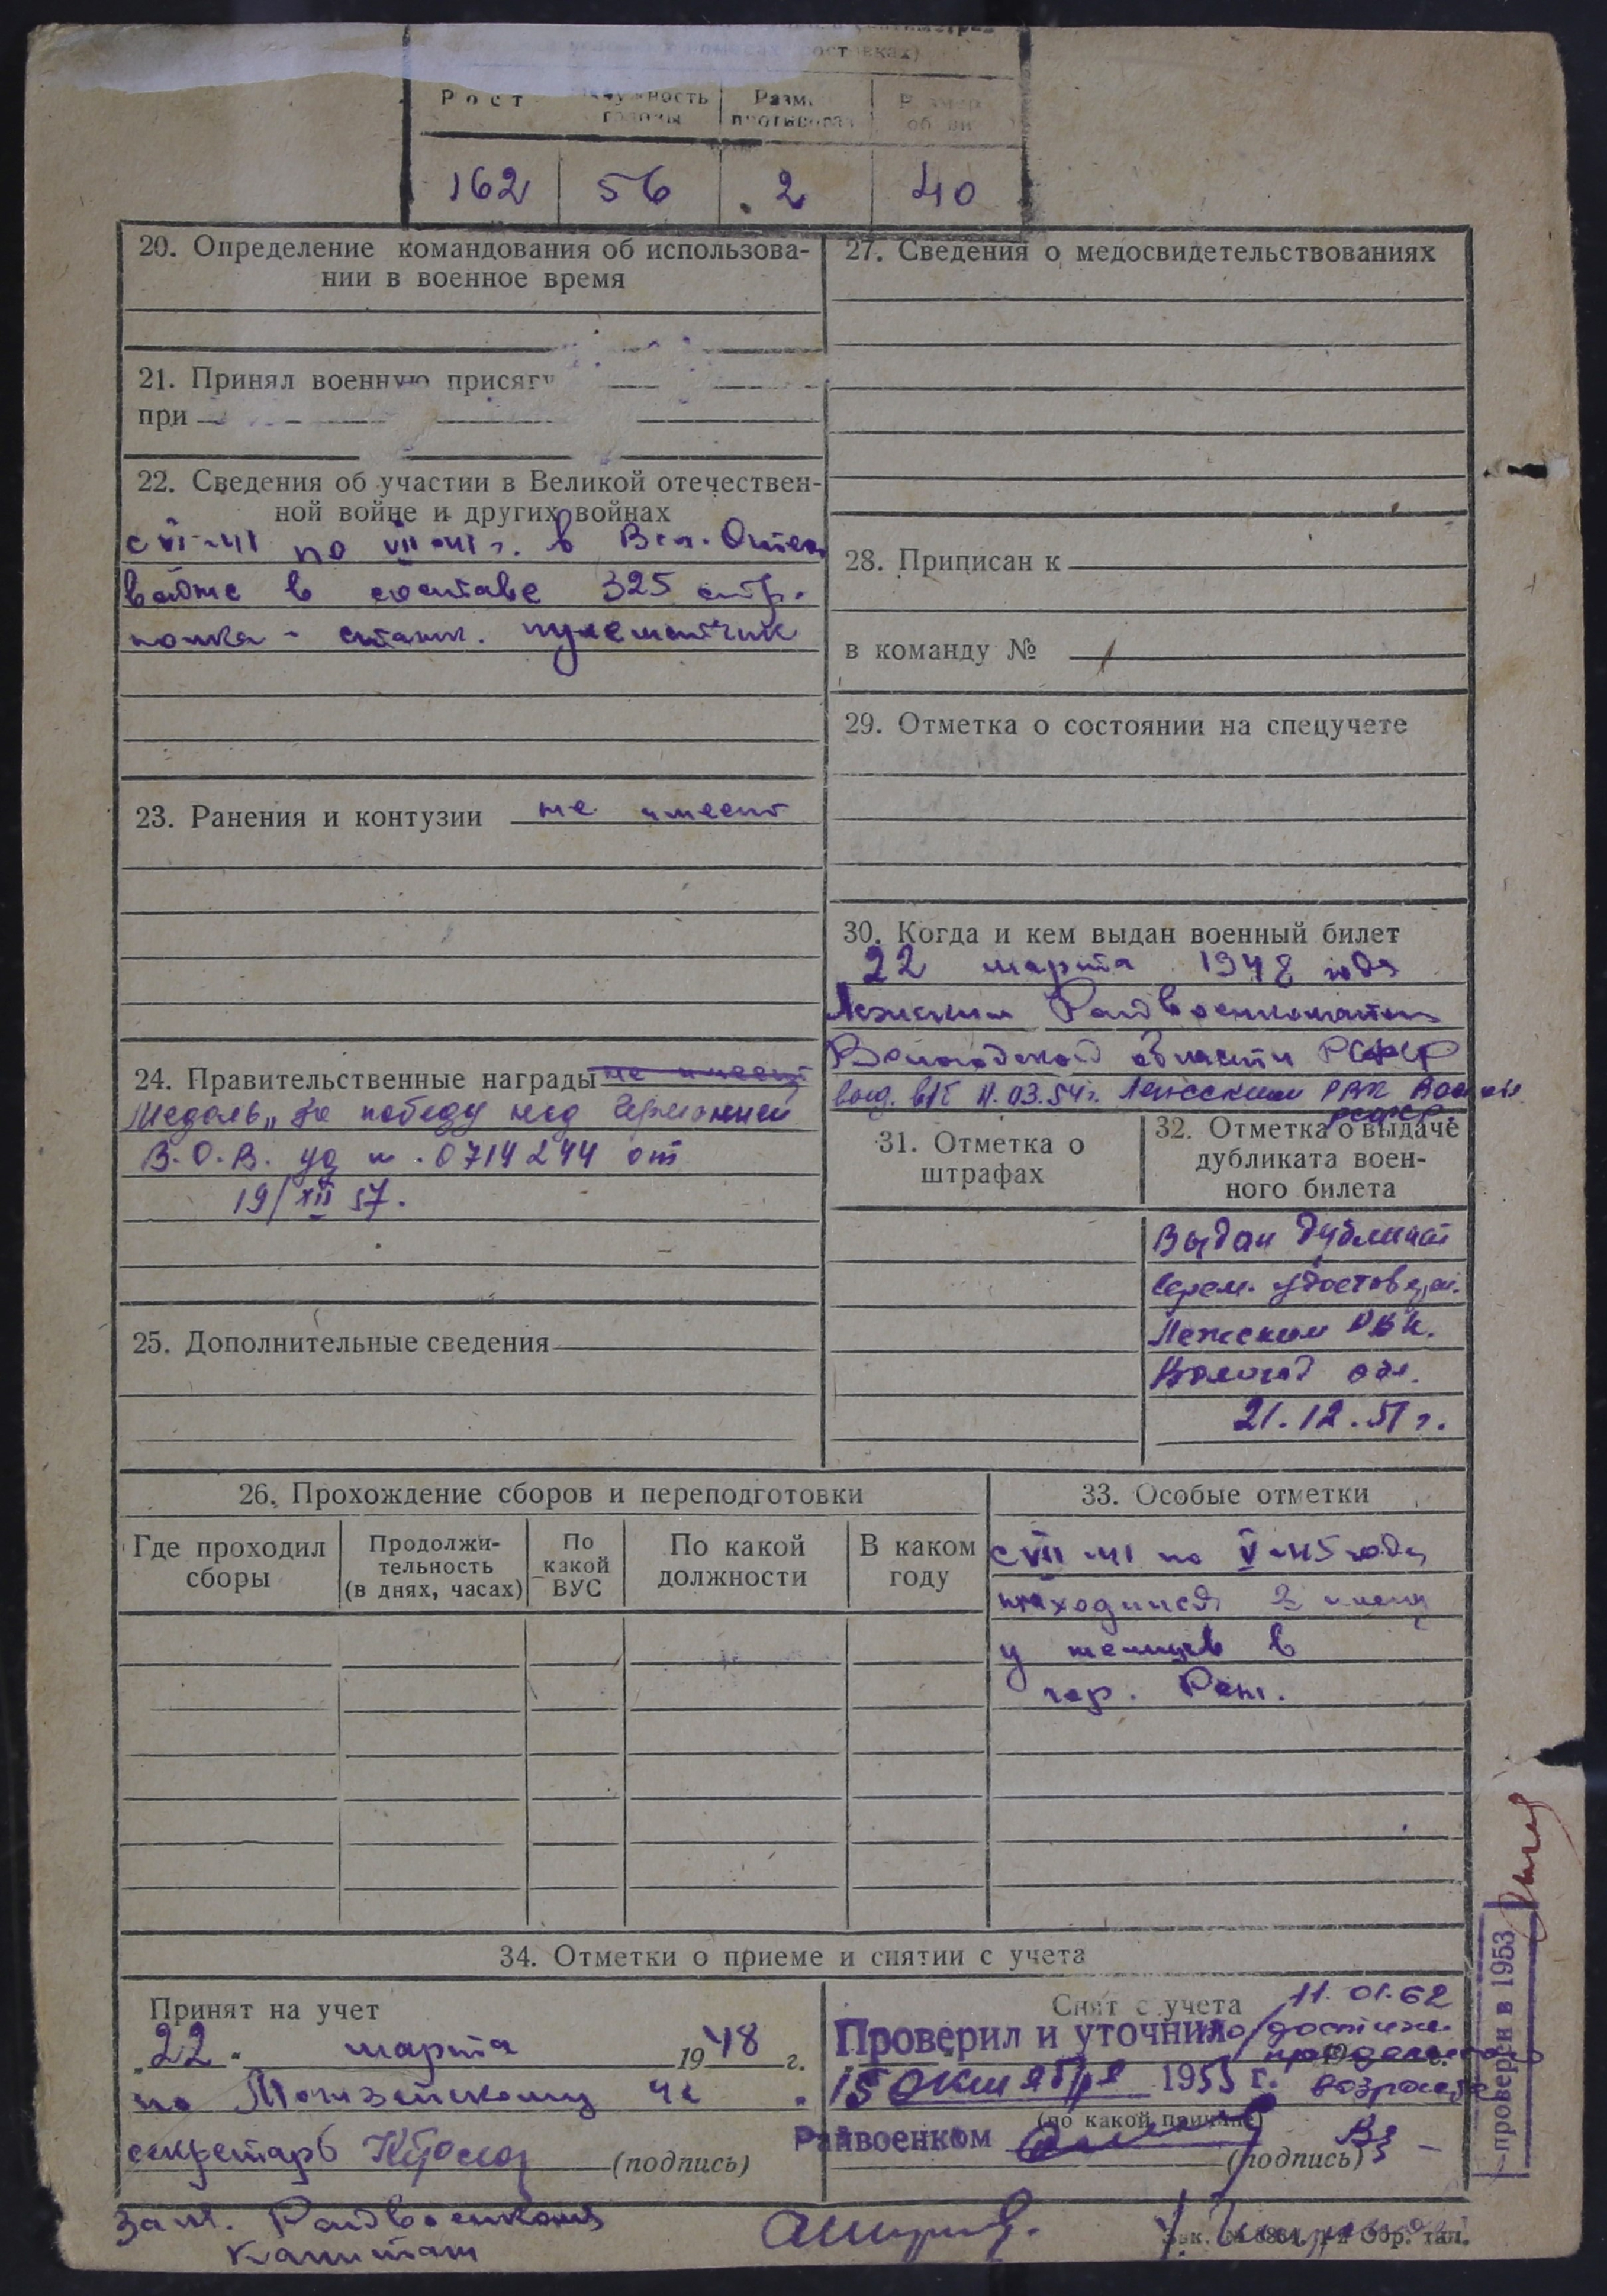 Рост
Размер
противогаза
162 56 2 40
20. Определение командования об использова-
нии в военное время
21. Принял военную присягу
при
22. Сведения об участии в Великой отечествен-
ной войне и других войнах
с VI-41 по VII-41 г. в Вел. Отеч.
войне в составе 325 стр.
полка - станк. пулеметчик
23. Ранения и контузии не имеет
24. Правительственные награды не имеет
Медаль „За победу над Германией
В.О.В. уд н. 0714244 от
19/XII 57.
25. Дополнительные сведения
27. Сведения о медосвидетельствованиях
28. Приписан к
в команду №
29. Отметка о состоянии на спецучете
30. Когда и кем выдан военный билет
22 марта 1948 года
Лежским Райвоенкоматом
Вологодской области РСФСР
выд. в/б 11.03.54 г. Лежским РВК
РСФСР
31. Отметка о
штрафах
32. Отметка о выдаче
дубликата воен-
ного билета
Выдан дубликат
удостовер.
Лежским РВК.
Волог. обл.
21.12.51 г.
26. Прохождение сборов и переподготовки
Где проходил
сборы
Продолжи-
тельность
(в днях, часах)
По
какой
ВУС
По какой
должности
В каком
году
33. Особые отметки
с VII-41 по V-45 года
находился в плену
у немцев в
гор.
34. Отметки о приеме и снятии с учета
Принят на учет
„22" марта 1948 г.
по
секретарь (подпись)
Зам. Райвоенкома
капитан
Снят с учета 11.01.62
по достиж.
предельного
возраста
Проверил и уточнил
15 октября 1955 г.
(по какой причине)
Райвоенком
(подпись)
проверен в 1953